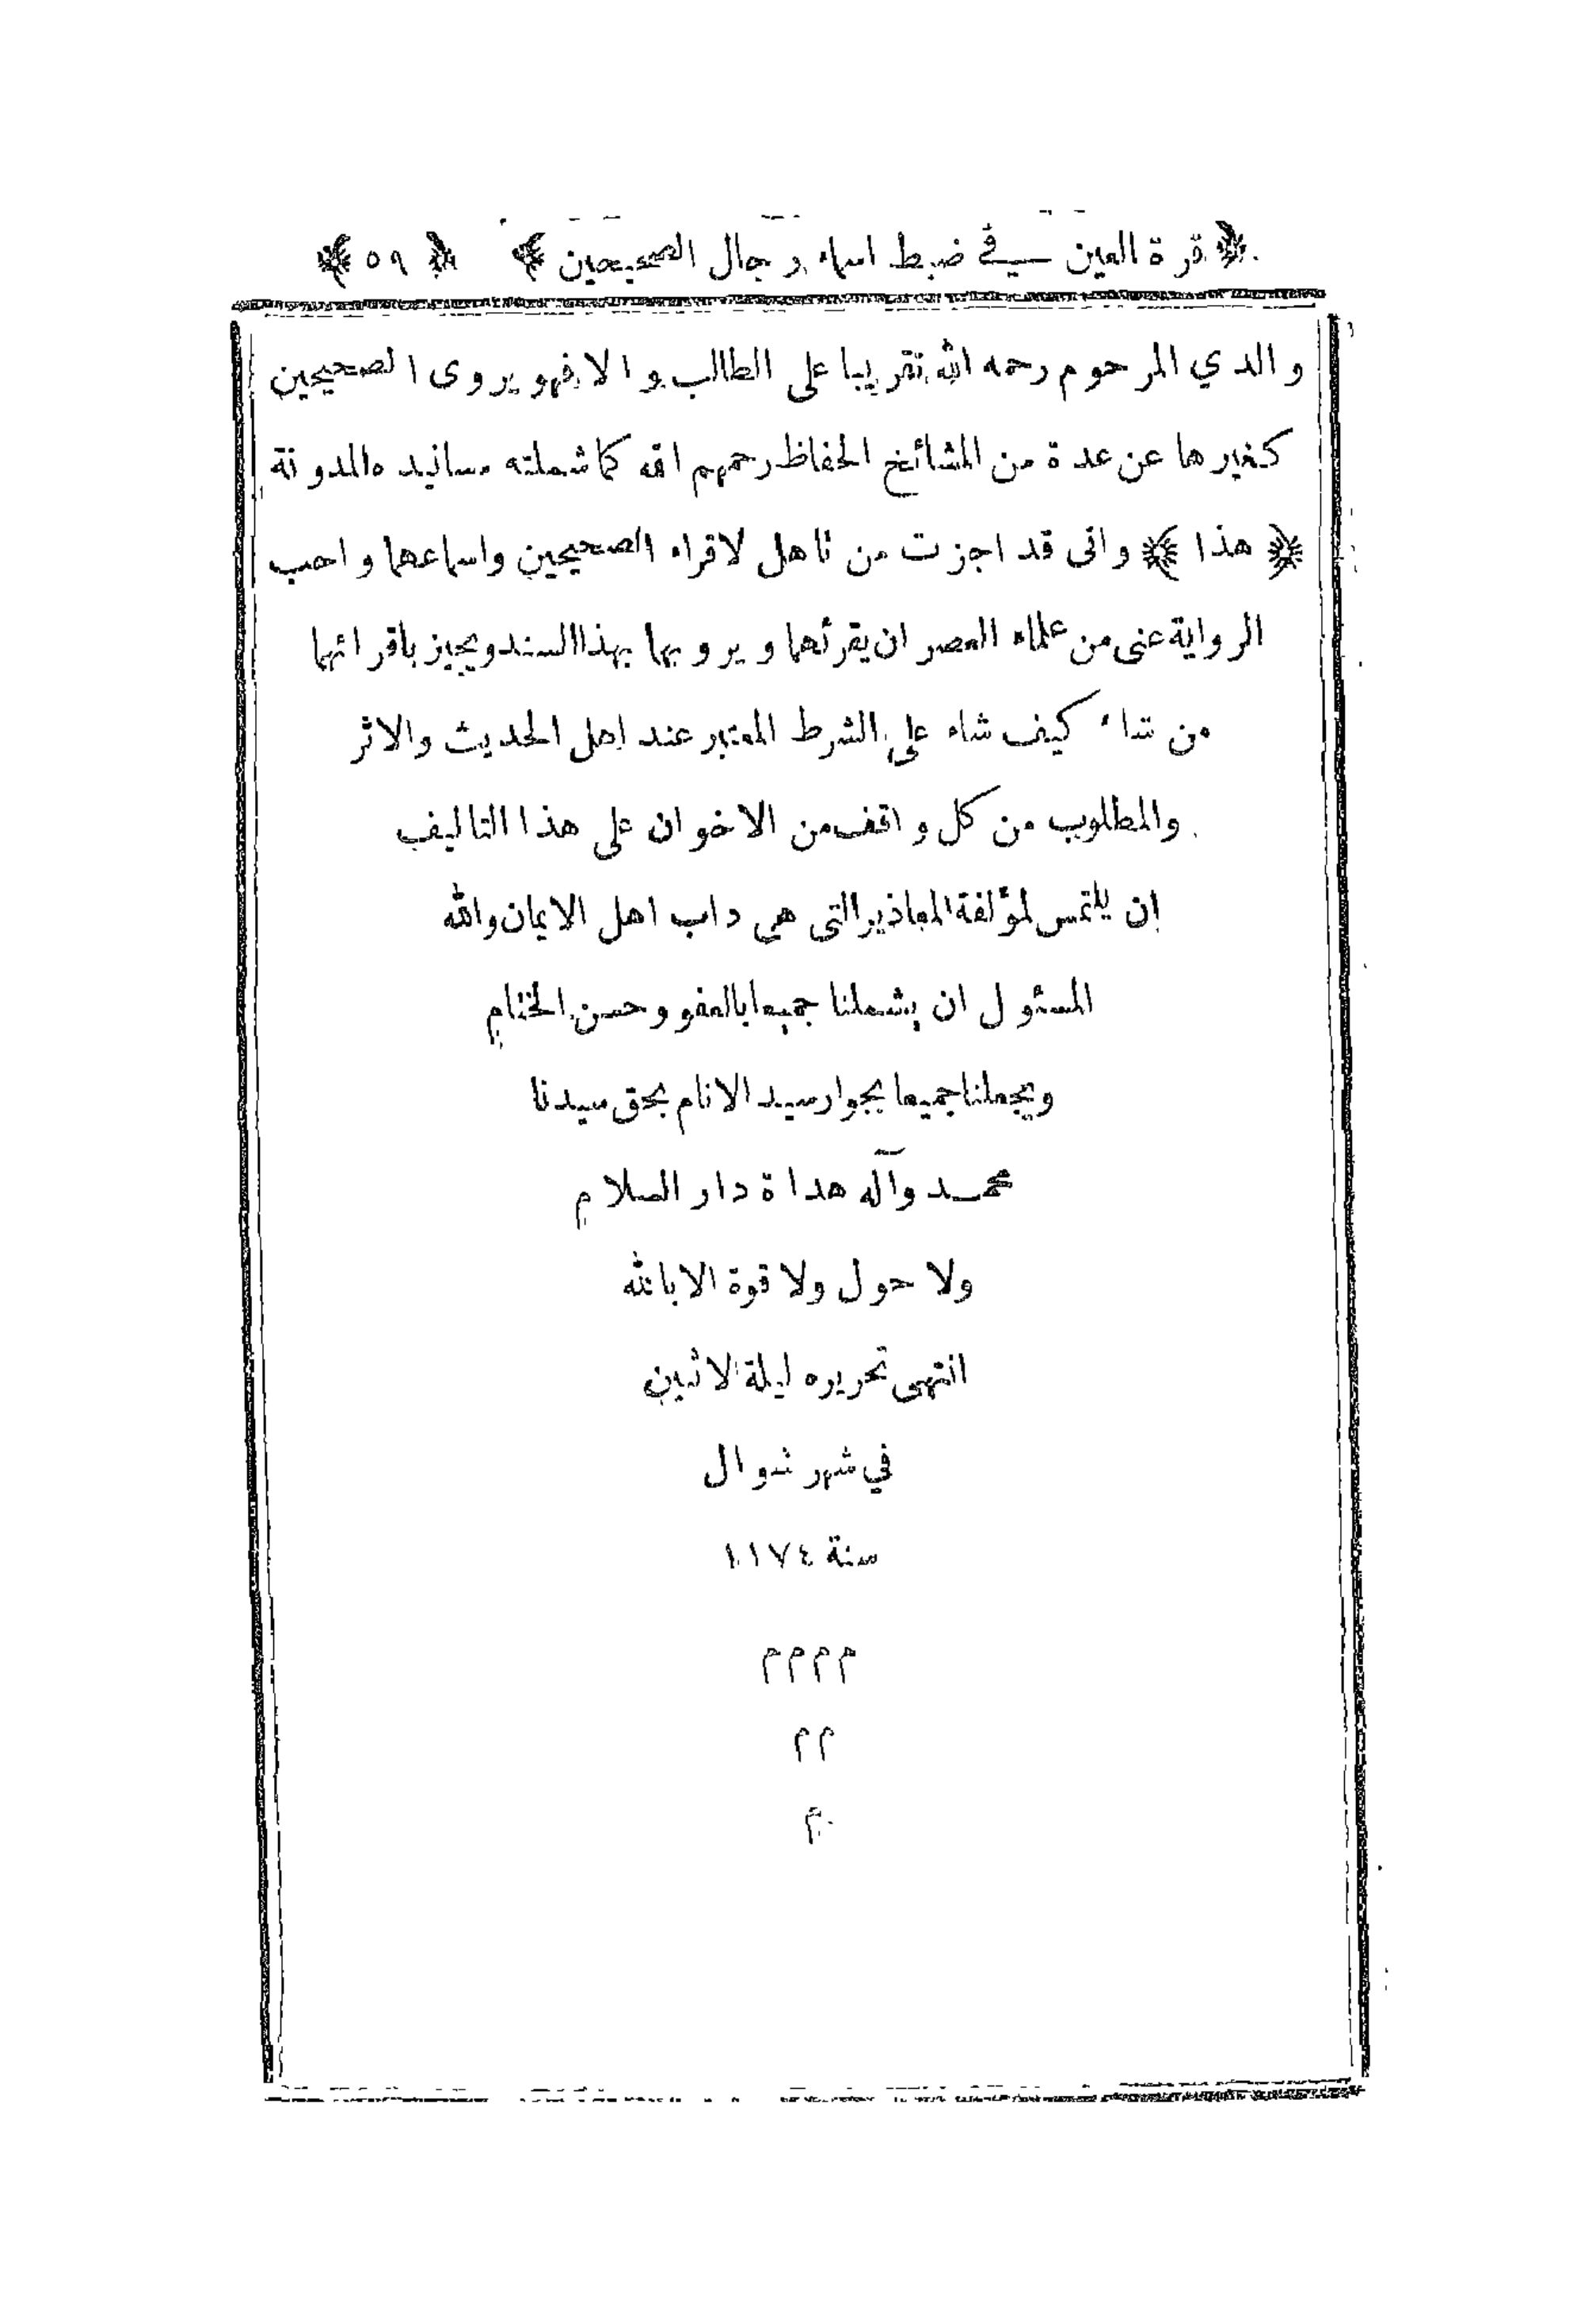 ﴿ قرة العين في ضبط اسماء رجال الصحيحين ﴾ ﴿ ٥٩ ﴾
والدي المرحوم رحمه الله تقريبا على الطالب والا فهو يروى الصحيحين
كغيرها عن عدة من المشائخ الحفاظ رحمهم الله كما شملته مسانيده المدونة
﴿ هذا ﴾ وانى قد اجزت من تاهل لاقراء الصحيحين واسماعهما واحب
الرواية عنى من علماء العصر ان يقرئهما ويرويهما بهذا السند ويجيز باقرائهما
من شاء كيف شاء على الشرط المعتبر عند اهل الحديث والاثر
والمطلوب من كل واقف من الاخوان على هذا التاليف
ان يلتمس لمؤلفة المعاذير التى هى داب اهل الايمان والله
المسئول ان يشملنا جميعا بالعفو وحسن الختام
ويجعلنا جميعا بجوار سيد الانام بحق سيدنا
محمد وآله هداة دار السلام
ولا حول ولا قوة الا بالله
انتهى تحريره ليلة الاثنين
في شهر شوال
سنة ١١٧٤
م م م م
م م
م